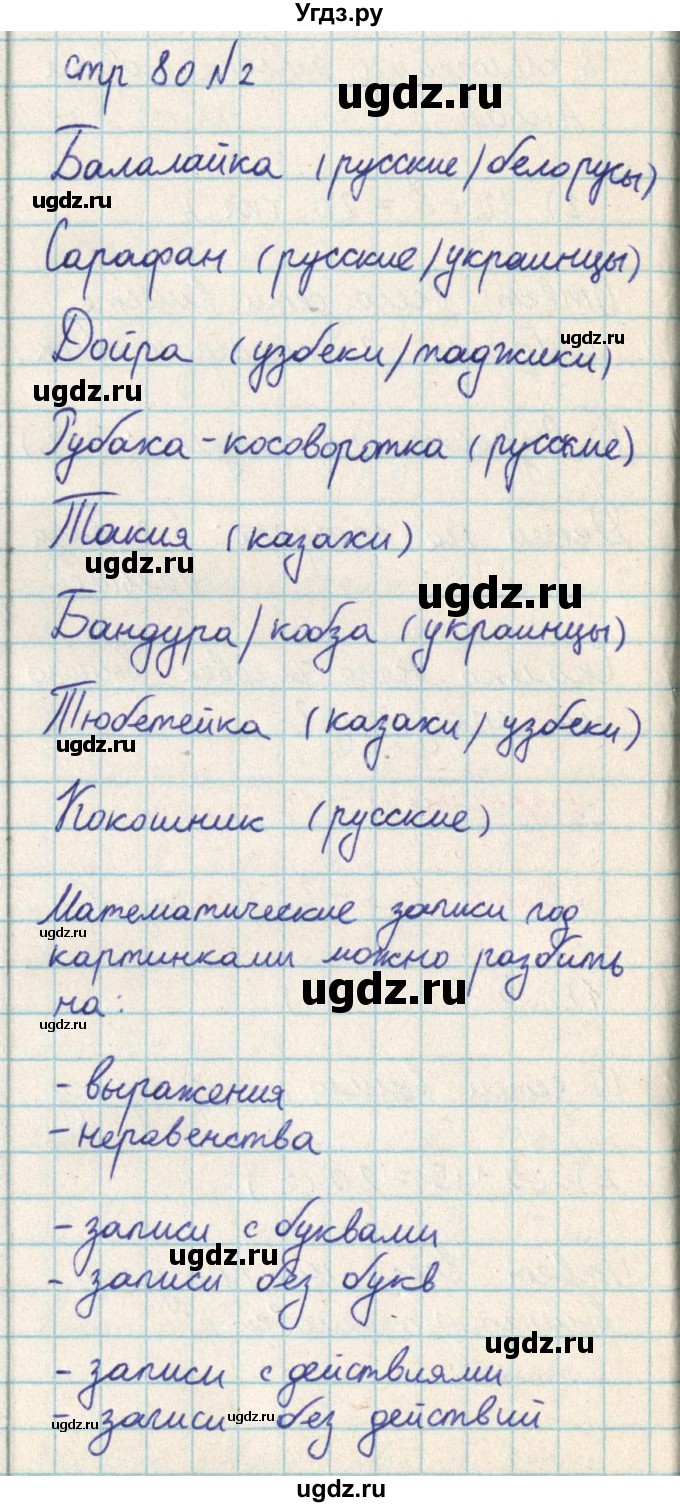 Угдз.ру
стр 80 №2
ugdz.ru
Балалайка (русские/белорусы)
ugdz.ru
Сарафан (русские/украинцы)
ugdz.ru
Дойра (узбеки/таджики)
ugdz.ru
Рубаха-косоворотка (русские)
Такия (казахи)
ugdz.ru
ugdz.ru
Бандура/кобза (украинцы)
Тюбетейка (казахи/узбеки)
ugdz.ru
Кокошник (русские)
Математические записи под
ugdz.ru
картинками можно разбить
ugdz.ru
на:
ugdz.ru
- выражения
- неравенства
- записи с буквами
ugdz.ru
- записи без букв
ugdz.ru
- записи с действиями
- записи без действий
ugdz.ru
ugdz.ru
ugdz.ru